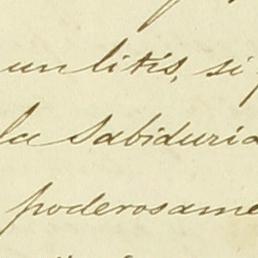 un litis, si
la Sabiduria
poderosame